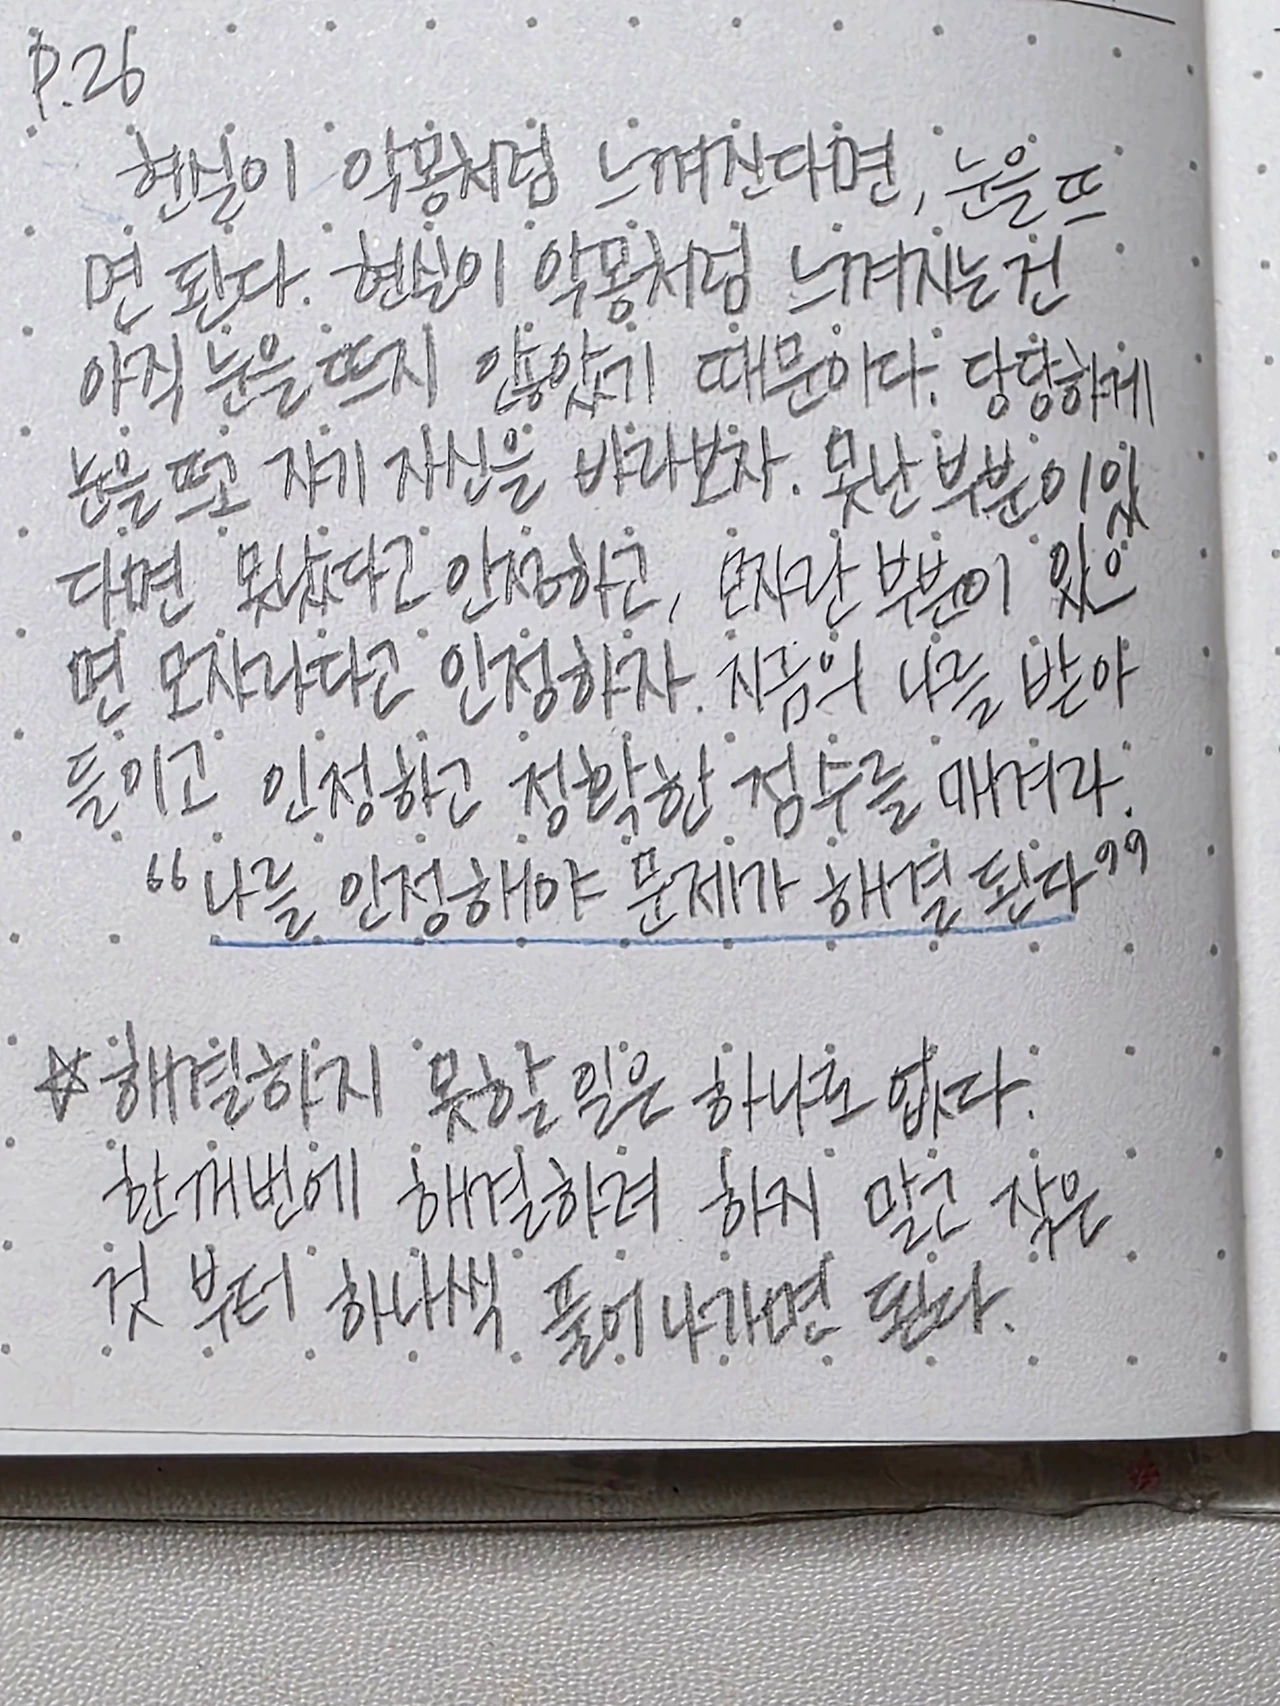 P.26
현실이 악몽처럼 느껴진다면, 눈을 뜨
면 된다. 현실이 악몽처럼 느껴지는건
아직 눈을 뜨지 않았기 때문이다. 당당하게
눈을 뜨고 자기 자신을 바라보자. 못난 부분이 있
다면 못났다고 인정하고, 모자란 부분이 있으
면 모자라다고 인정하자. 지금의 나를 받아
들이고 인정하고 정확한 점수를 매겨라.
“나를 인정해야 문제가 해결 된다”
☆해결하지 못할 일은 하나도 없다.
한꺼번에 해결하려 하지 말고 작은
것 부터 하나씩 풀어나가면 된다.